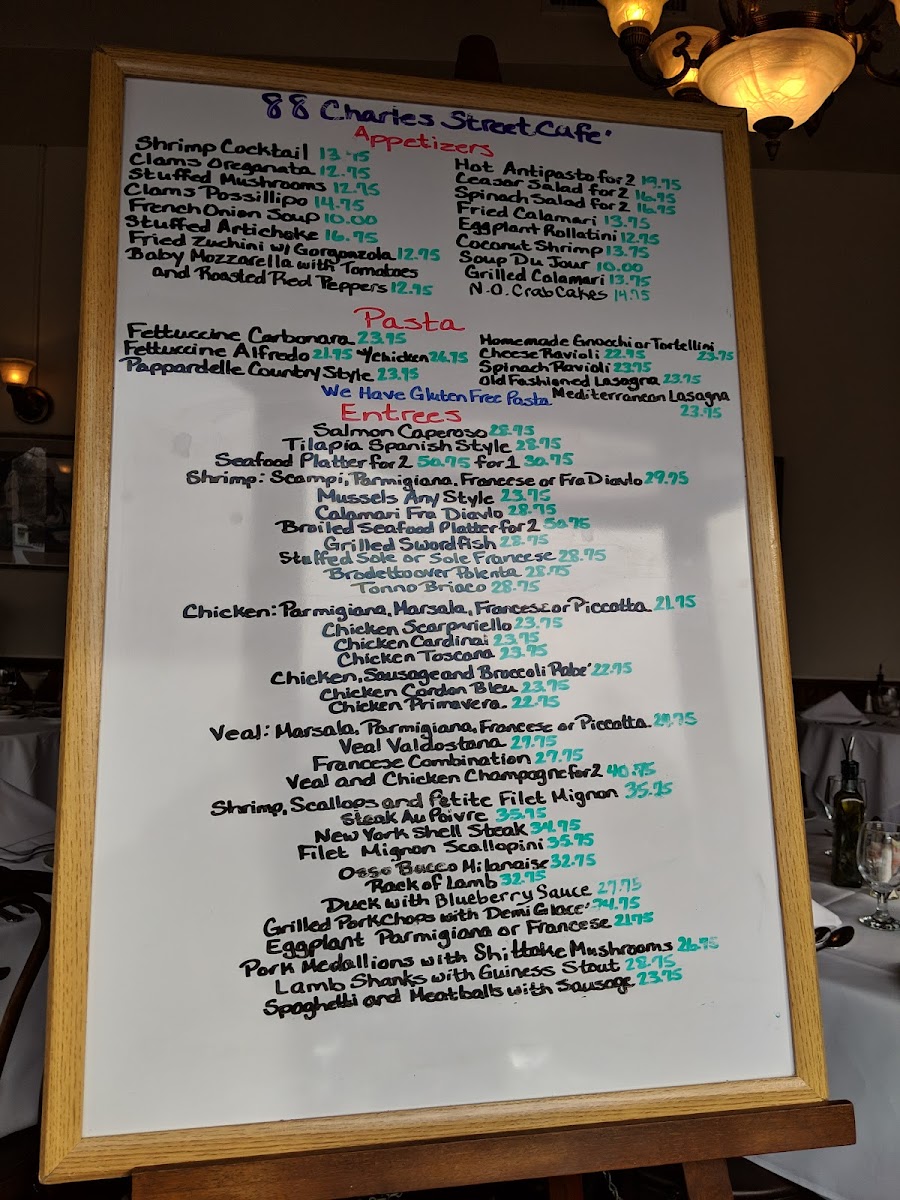 88 Charles Street Cafe'
Appetizers
Shrimp Cocktail 13.75
Clams Oreganata 12.75
Stuffed Mushrooms 12.75
Clams Possillipo 14.75
French Onion Soup 10.00
Stuffed Artichoke 16.75
Fried Zuchini w/ Gorgonzola 12.75
Baby Mozzarella with Tomatoes
and Roasted Red Peppers 12.95
Hot Antipasto for 2 19.75
Ceasar Salad for 2 16.75
Spinach Salad for 2 16.75
Fried Calamari 13.75
Eggplant Rollatini 12.75
Coconut Shrimp 13.75
Soup Du Jour 10.00
Grilled Calamari 13.75
N.O. Crab Cakes 14.75
Pasta
Fettuccine Carbonara 23.95
Fettuccine Alfredo 21.95 w/chicken 26.75
Pappardelle Country Style 23.95
Homemade Gnocchi or Tortellini
23.75
Cheese Ravioli 22.95
Spinach Ravioli 23.75
Old Fashioned Lasagna 23.75
Mediterranean Lasagna
23.95
We Have Gluten Free Pasta
Entrees
Salmon Caperoso 28.95
Tilapia Spanish Style 28.75
Seafood Platter for 2 50.75 for 1 30.75
Shrimp: Scampi, Parmigiana, Francese or Fra Diavlo 29.75
Mussels Any Style 23.75
Calamari Fra Diavlo 28.75
Broiled Seafood Platter for 2 50.75
Grilled Swordfish 28.75
Stuffed Sole or Sole Francese 28.75
Brodetto over Polenta 28.75
Tonno Briaco 28.75
Chicken: Parmigiana, Marsala, Francese or Piccatta 21.75
Chicken Scarpariello 23.75
Chicken Cardinal 23.75
Chicken Toscana 23.75
Chicken, Sausage and Broccoli Rabe' 22.75
Chicken Cordon Bleu 23.75
Chicken Primavera 22.75
Veal: Marsala, Parmigiana, Francese or Piccatta
Veal Valdostana 27.75
Francese Combination 27.75
Veal and Chicken Champagne for 2 40.75
Shrimp, Scallops and Petite Filet Mignon 35.75
Steak Au Poivre 35.75
New York Shell Steak 34.75
Filet Mignon Scallopini 35.75
Osso Bucco Milanaise 32.75
Rack of Lamb 32.75
Duck with Blueberry Sauce 27.75
Grilled Pork Chops with Demi Glace'
Eggplant Parmigiana or Francese 21.75
Pork Medallions with Shittake Mushrooms 26.75
Lamb Shanks with Guiness Stout 28.75
Spaghetti and Meatballs with Sausage 23.75